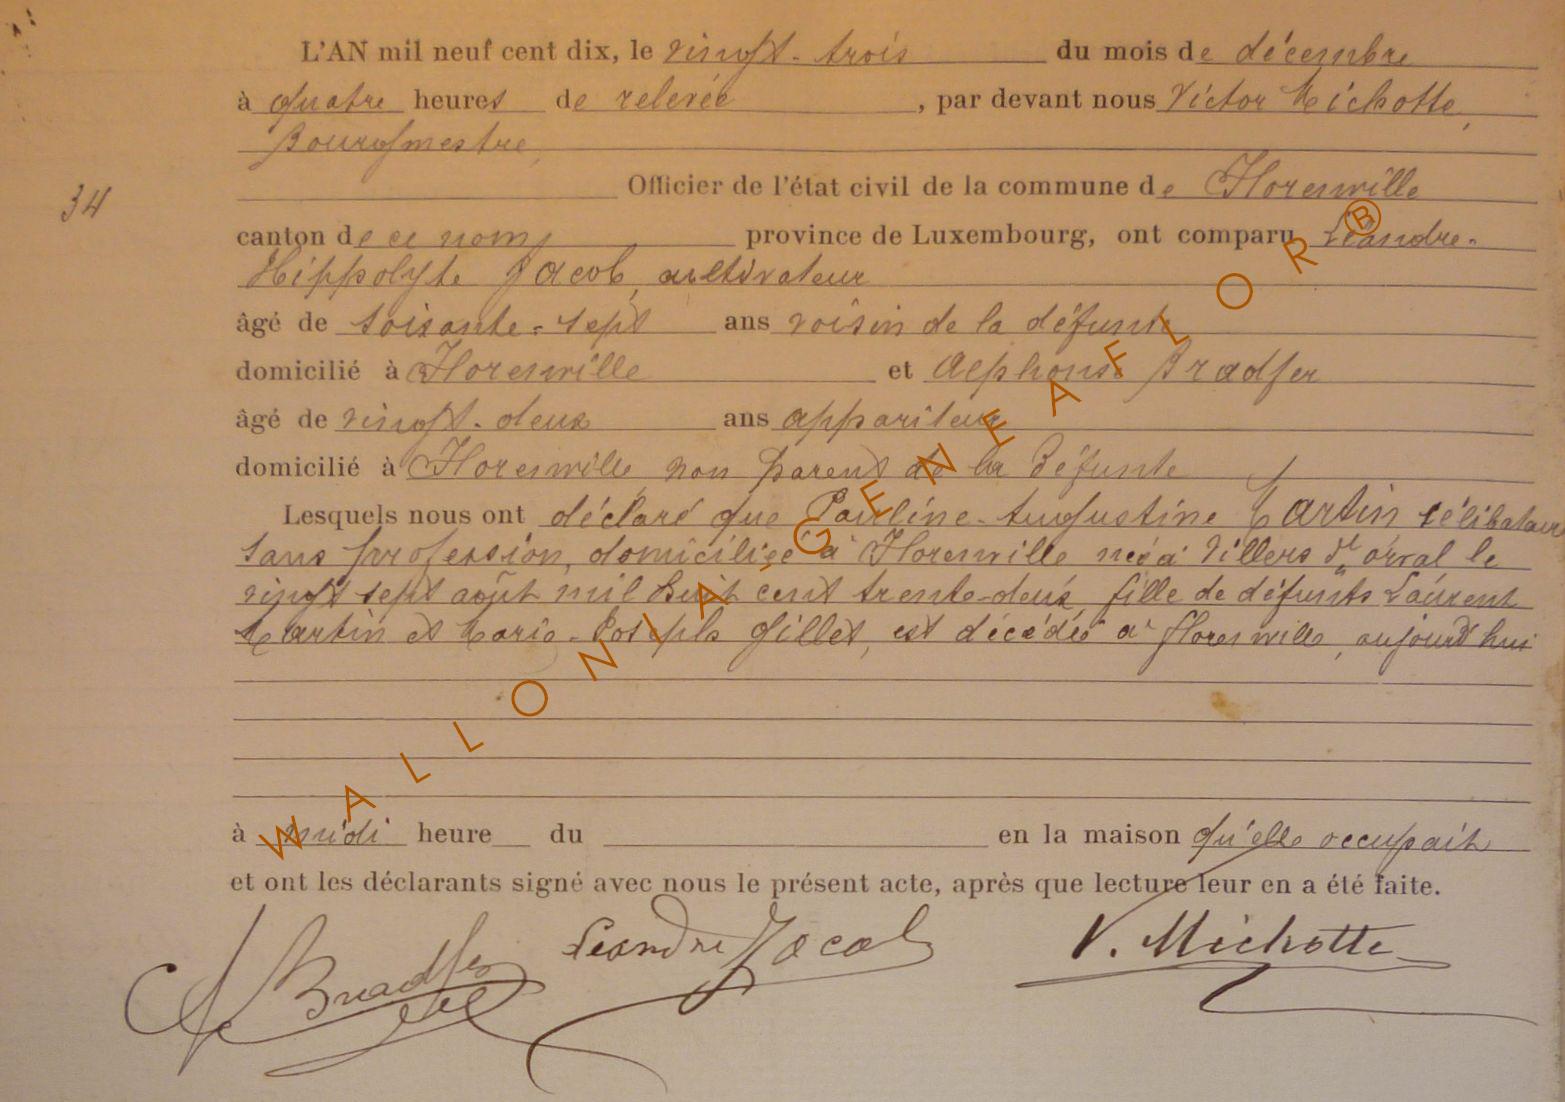 L'AN mil neuf cent dix, le vingt-trois du mois de décembre
à quatre heures de relevée, par devant nous Victor Michotte,
Bourgmestre,
34
Officier de l'état civil de la commune de Florenville
canton de ce nom, province de Luxembourg, ont comparu Léandre-
Hippolyte Jacob, cultivateur
âgé de soixante-sept ans voisin de la défunte
domicilié à Florenville et Alphonse Bradfer
âgé de vingt-deux ans appariteur
domicilié à Florenville non parent de la défunte
Lesquels nous ont déclaré que Pauline-Augustine Martin célibataire
sans profession, domiciliée à Florenville née à Villers dt orval le
vingt sept août mil huit cent trente-deux, fille de défunts Laurent
Martin et Marie-Joseph Gillet, est décédée à Florenville, aujourd'hui
à midi heure du en la maison qu'elle occupait
et ont les déclarants signé avec nous le présent acte, après que lecture leur en a été faite.
A Bradfer Leandre Jacob V. Michotte
WALLONIA-GENEAFLOR®